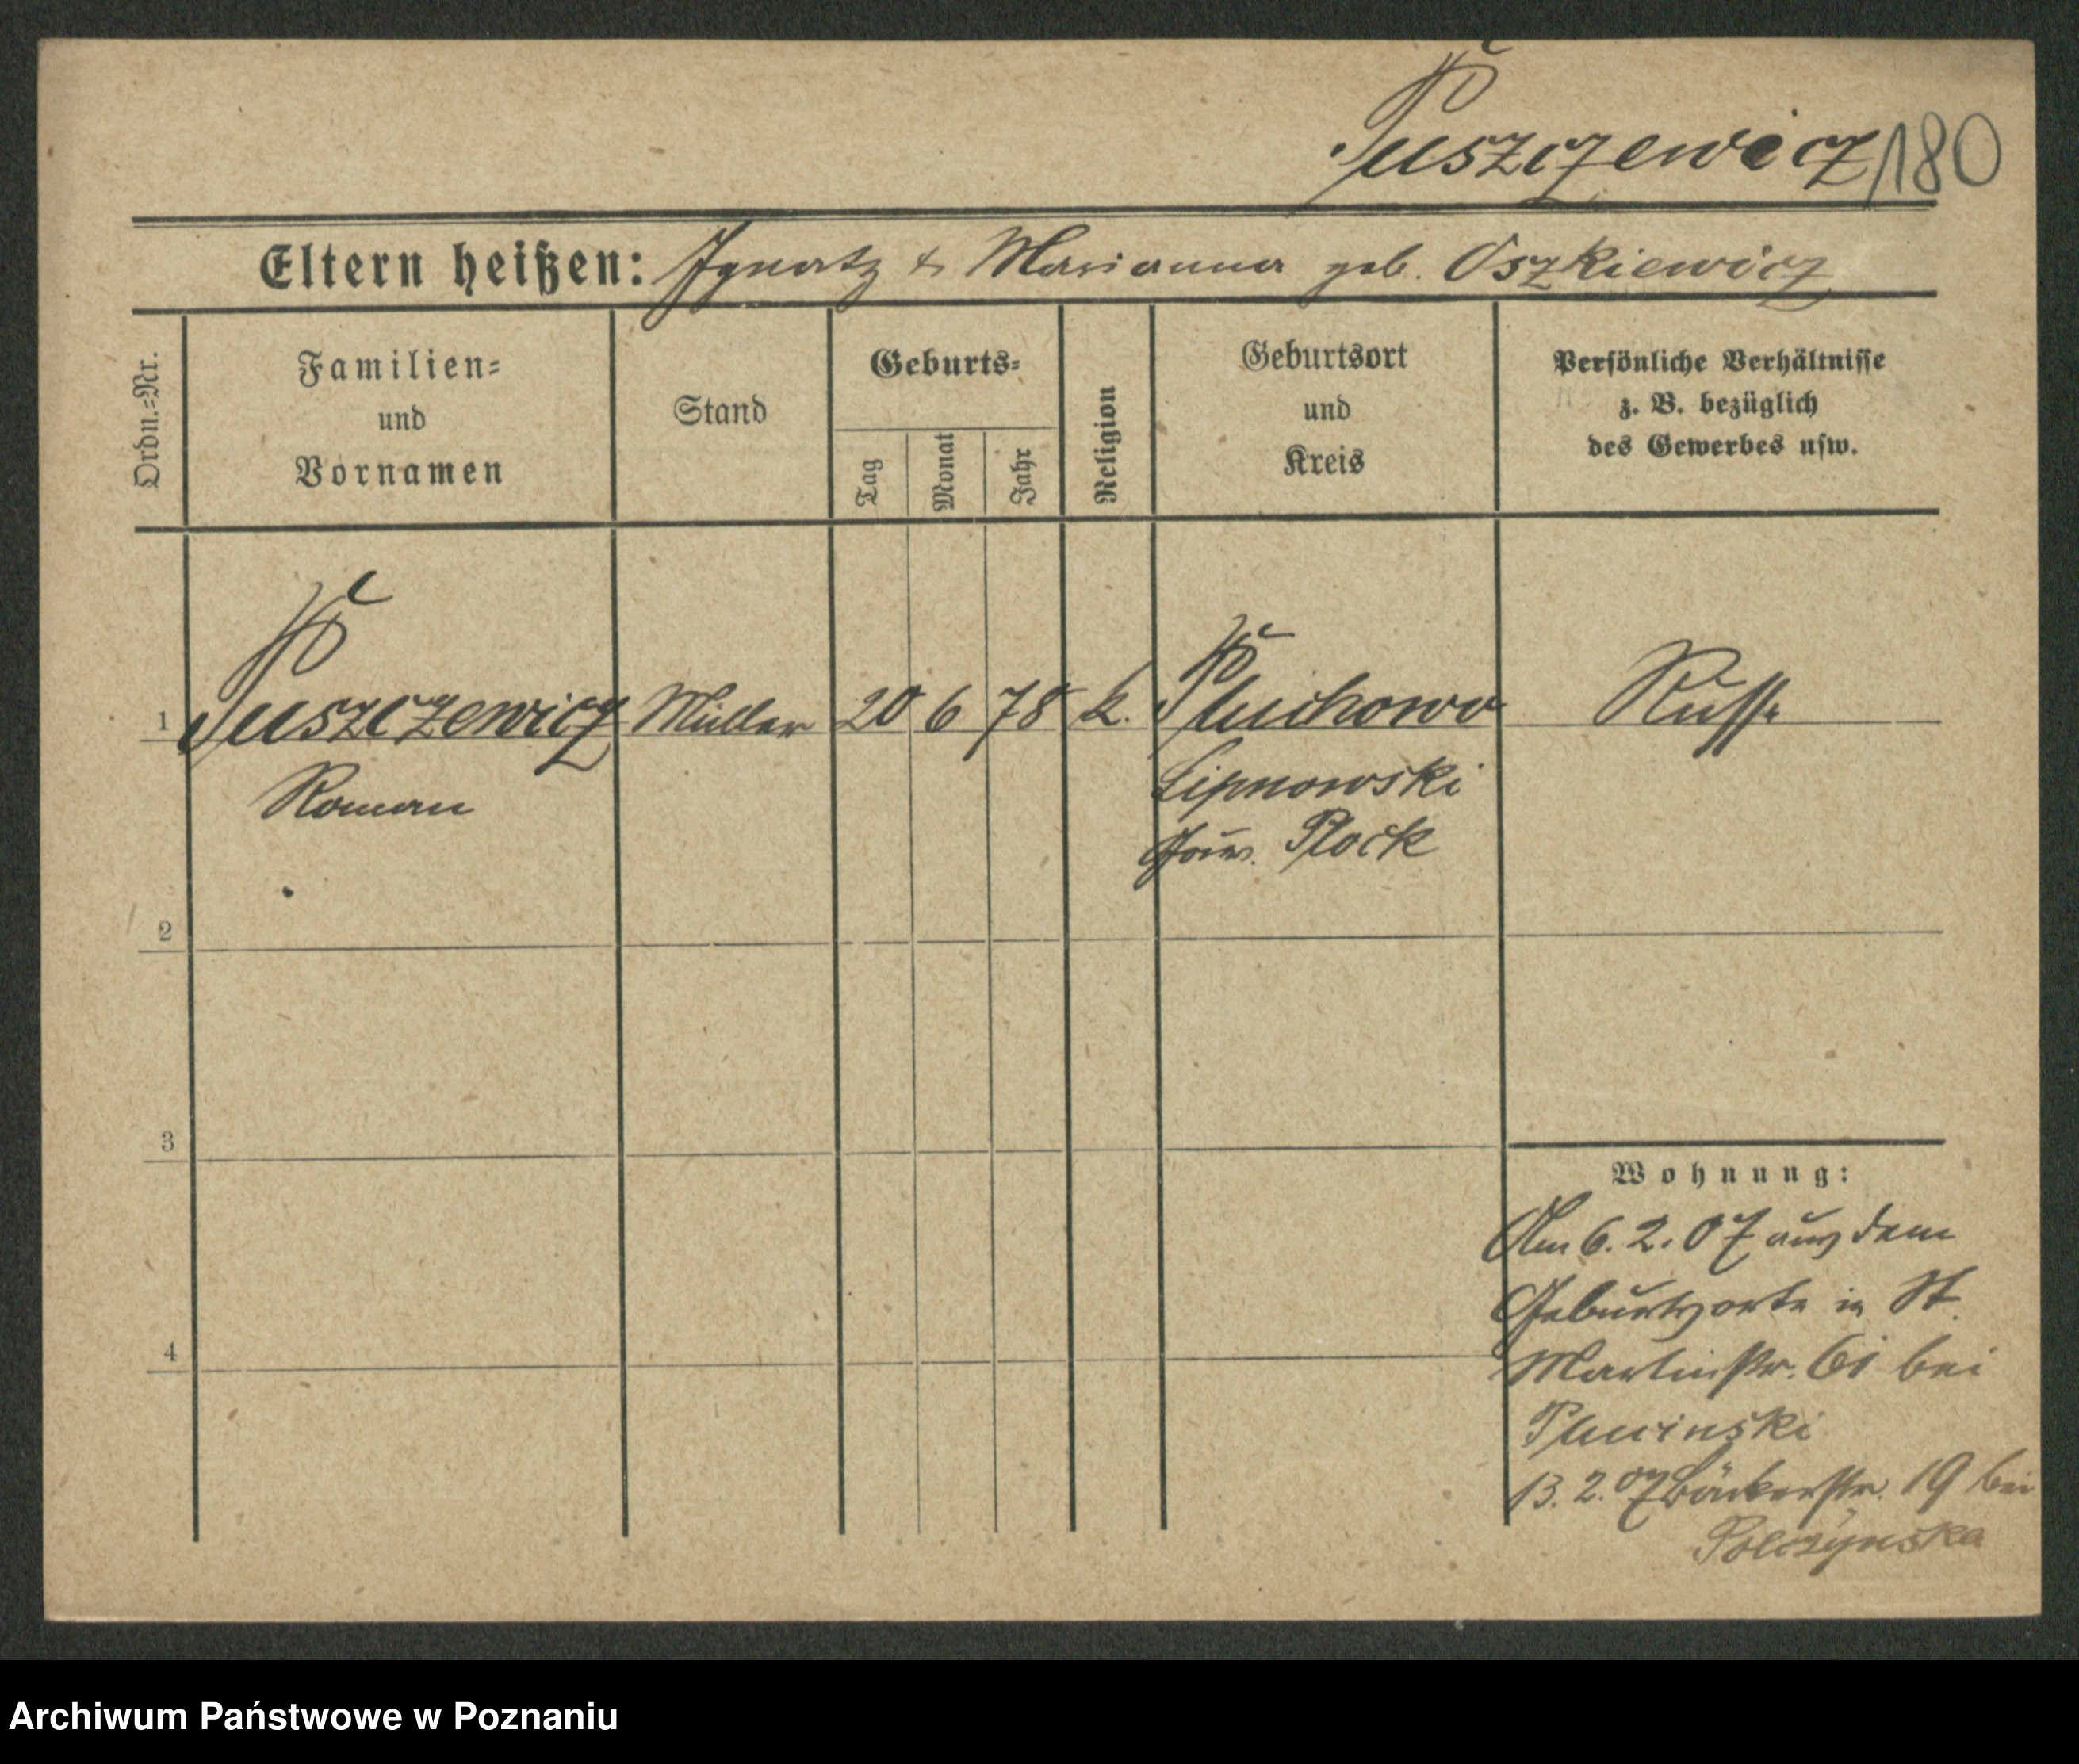 Puszczewicz 180
Eltern heißen: Ignatz & Marianna geb. Oszkiewicz
Ordn.=Nr.
Familien=
und
Vornamen
Stand
Geburts=
Tag
Monat
Jahr
Religion
Geburtsort
und
Kreis
Persönliche Verhältnisse
z. B. bezüglich
des Gewerbes usw.
1 Puszczewicz Müller 20 6 78 k. Pluchowo Russe
Roman Lipnowski
Gouv. Plock
2
3
4
Wohnung:
Am 6. 2. 07 aus dem
Geburtsorte in St.
Martinstr. 61 bei
13. 2. 07 Bäckerstr. 19 bei
Archiwum Państwowe w Poznaniu